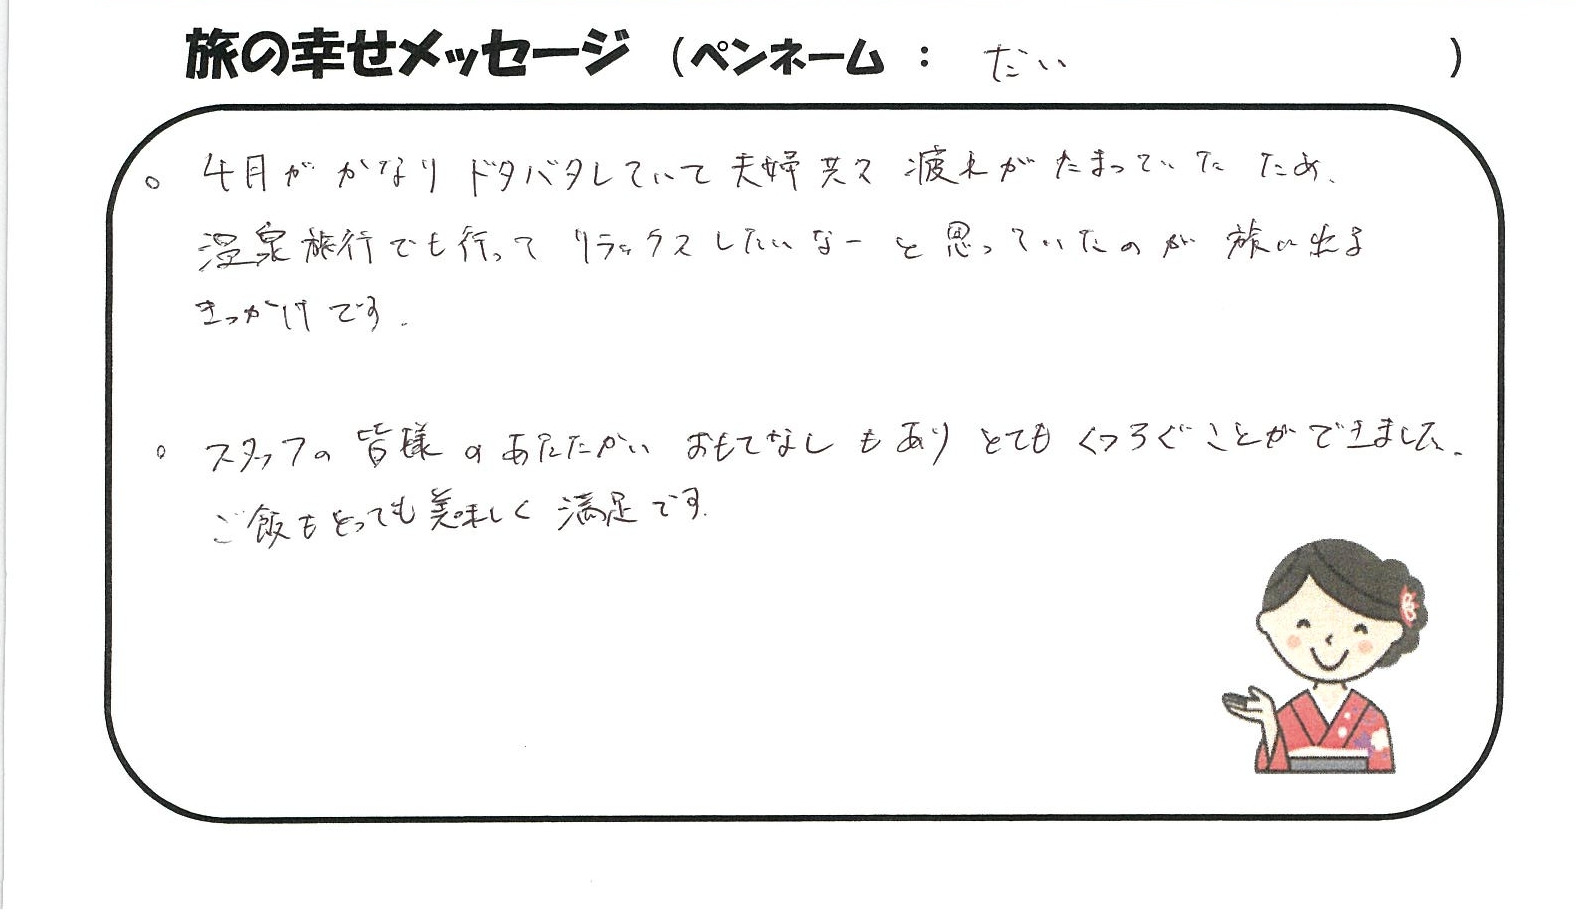 旅の幸せメッセージ（ペンネーム：たい）
。4月がかなりドタバタしていて夫婦共々疲れがたまっていたため、
温泉旅行でも行ってリラックスしたいなーと思っていたのが旅に出る
きっかけです.
。スタッフの皆様のあたたかいおもてなしもありとてもくつろぐことができました.
ご飯もとっても美味しく満足です.